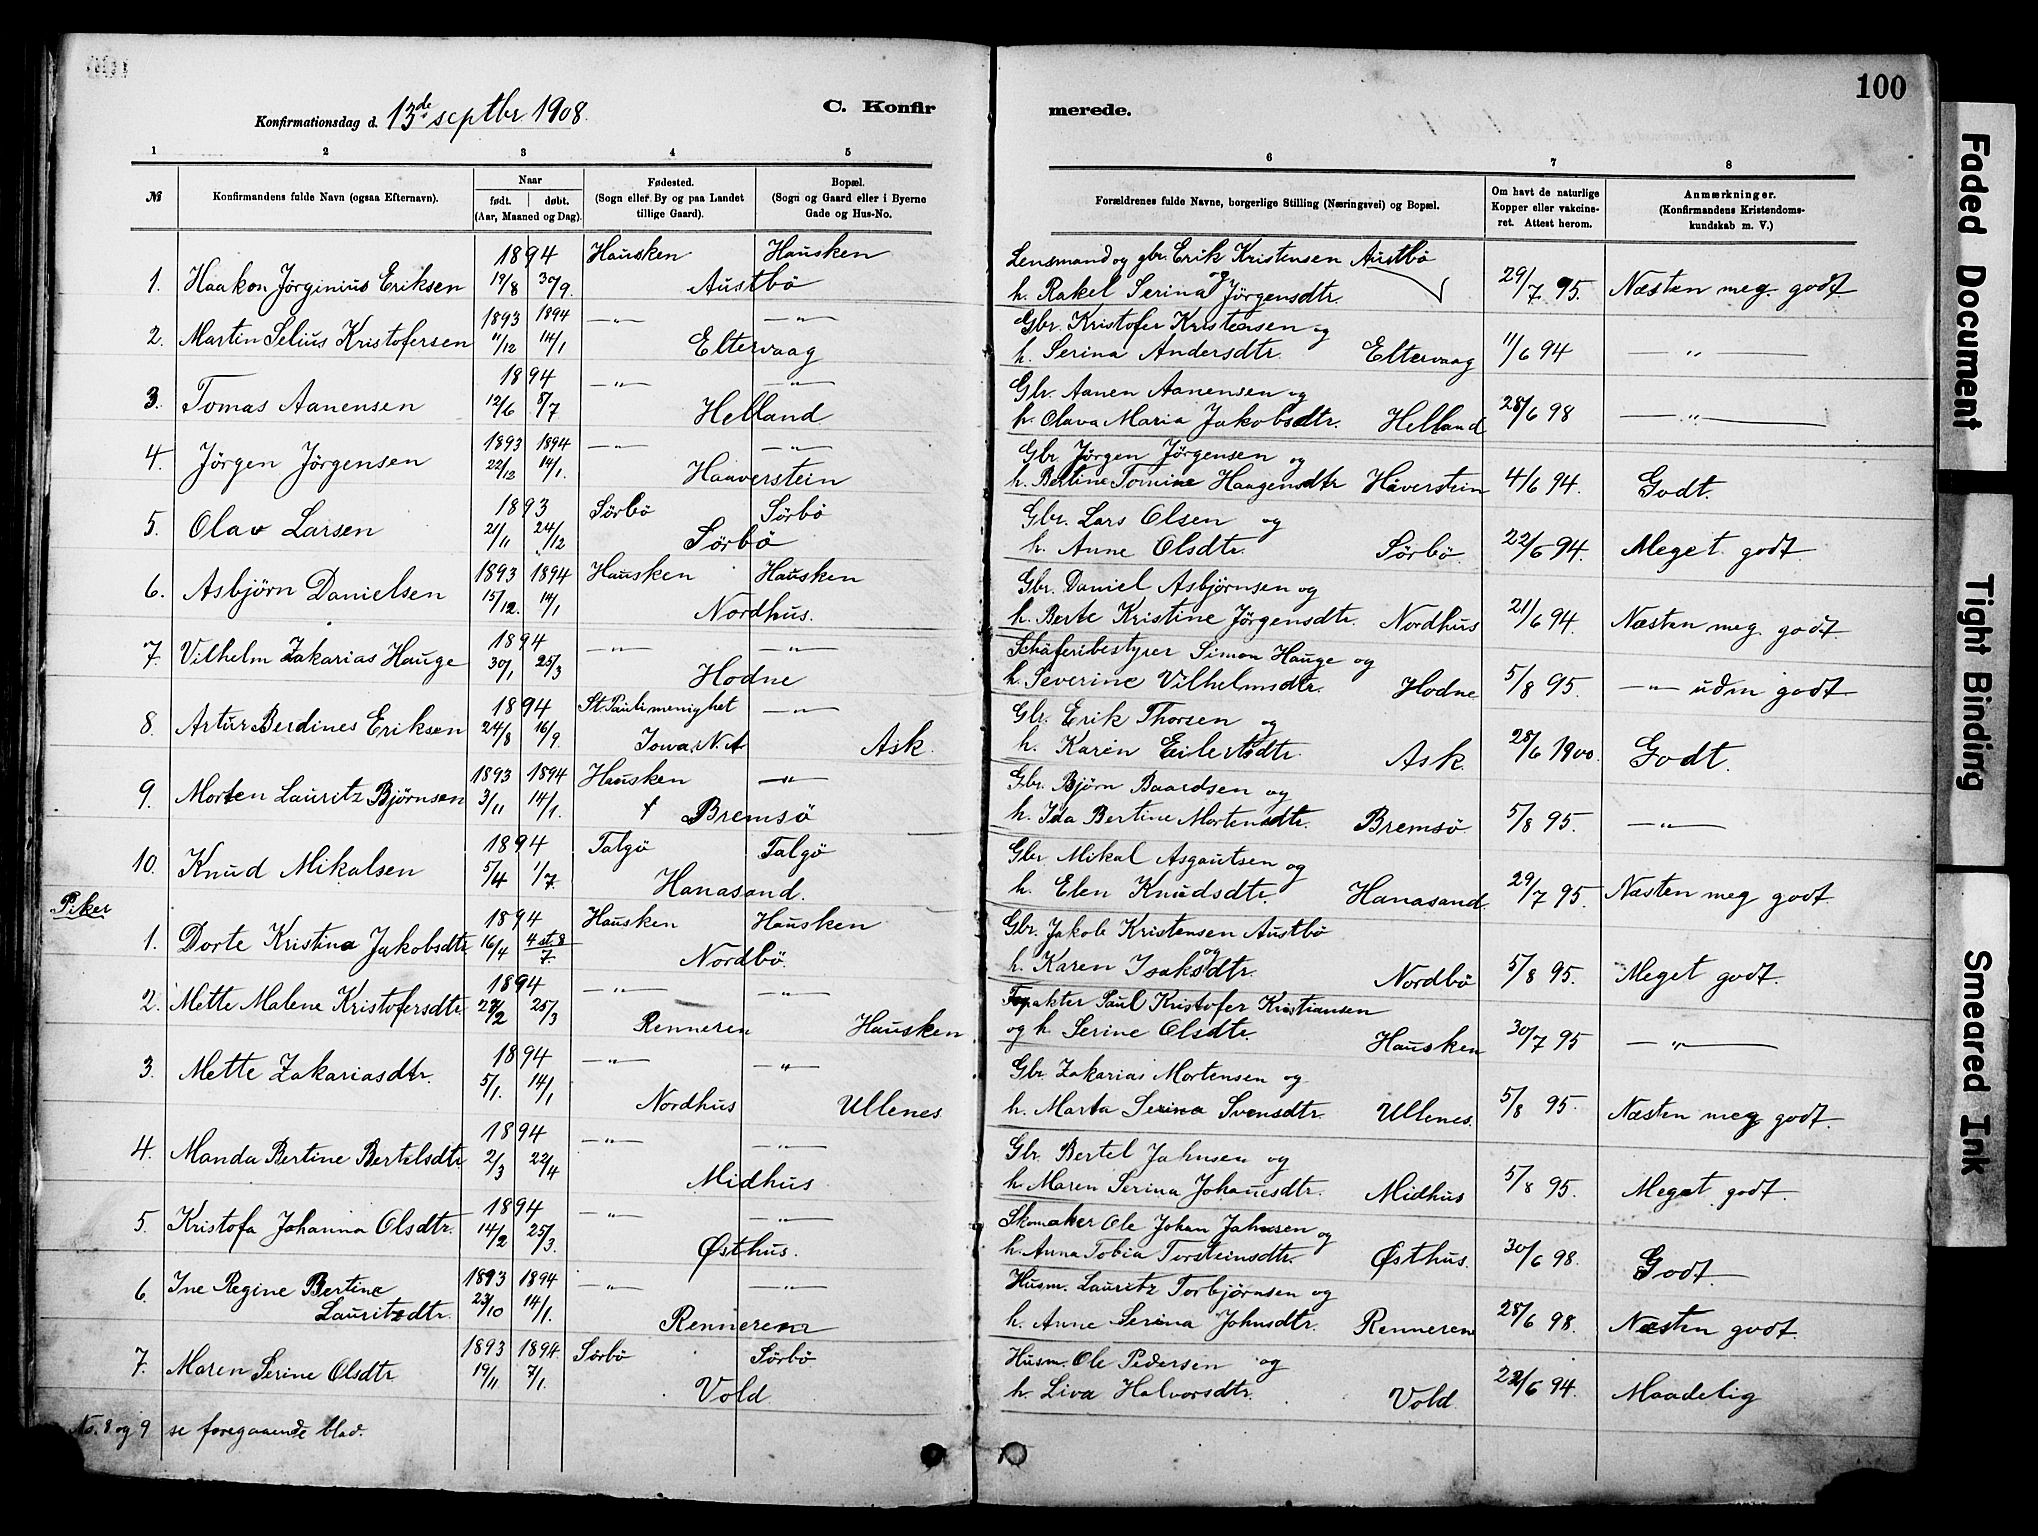 100
Konfirmationsdag d. 13de septbr 1908.
C. Konfir
merede.
1 2 3 4 5 6 7 8
№
Konfirmandens fulde Navn (ogsaa Efternavn).
Naar
født. døbt.
(Aar, Maaned og Dag).
Fødested.
(Sogn eller By og paa Landet
tillige Gaard).
Bopæl.
(Sogn og Gaard eller i Byerne
Gade og Hus-No.
Forældrenes fulde Navne, borgerlige Stilling (Næringsvei) og Bopæl.
Om havt de naturlige
Kopper eller vakcine-
ret. Attest herom.
Anmærkninger.
(Konfirmandens Kristendoms-
kundskab m. V.)
1894 Hausken Hausken Lensmand og gbr. Erik Kristensen Austbö
1. Haakon Jörginius Eriksen 19/8 30/9. Austbö h. Rakel Serina og Jörgensdtr. 29/7 95. Næsten meg. godt.
1893 1894 —"— —"— Gbr. Kristofer Kristensen og
2. Martin Selius Kristofersen 11/12 14/1 Eltervaag h. Serina Andersdtr. Eltervaag 11/6 94 —"—
1894 —"— —"— Gbr. Aanen Aanensen og
3. Tomas Aanensen 12/6 8/7 Helland h. Olava Maria Jakobsdtr. Helland 28/6 98 —"—
1893 1894 —"— —"— Gbr. Jörgen Jörgensen og
4. Jörgen Jörgensen 22/12 14/1. Haaverstein h. Bertine Tomine Haagensdtr Håverstein 4/6 94. Godt.
1893 Sörbö Sörbö Gbr. Lars Olsen og
5. Olav Larsen 21/11 24/12 Sörbö h. Anne Olsdtr. Sörbö. 22/6 94. Meget godt
1893 1894 Hausken Hausken Gbr. Daniel Asbjörnsen og
6. Asbjörn Danielsen 15/12. 14/1 Nordhus. h. Berte Kristine Jörgensdtr. Nordhus 21/6 94. Næsten meg godt
1894 —"— —"— Schäferibestyrer Simon Hauge og
7. Vilhelm Zakarias Hauge 30/1 25/3 Hodne h. Severine Vilhelmsdtr. Hodne 5/8 95. —"— udm godt
1894 St. Pauli menighet —"— Gbr. Erik Thorsen og
8. Artur Berdines Eriksen 24/8 16/9. Iowa. N.A Ask. h. Karen Eilertsdtr. Ask. 28/6 1900. Godt.
1893 1894 Hausken —"— Gbr. Björn Baardsen og
9. Morten Lauritz Björnsen 3/11 14/1. Bremsö h. Ida Bertine Mortensdtr. Bremsö 5/8 95. —"—
1894 Talgö Talgö Gbr. Mikal Asgautsen og
10. Knud Mikalsen 5/4 1/7. Hanasand. h. Elen Knudsdtr. Hanasand. 29/7 95. Næsten meg godt
Piker
1894 Hausken Hausken Gbr. Jakob Kristensen Austbö
1. Dorte Kristina Jakobsdtr. 16/4 4 st. 8/7. Nordbö. h. Karen og Isaksdtr. Nordbö 5/8 95. Meget godt.
1894 —"— —"— Paul Kristofer Kristiansen
2. Mette Malene Kristofersdtr 25/3 Renneren Hausken og h. Serine Olsdtr. Hausken 30/7 95 —"—
1894 —"— —"— Gbr. Zakarias Mortensen og
3. Mette Zakariasdtr. 5/1. 14/1 Nordhus Ullenes h. Marta Serina Svensdtr. Ullenes. 5/8 95. Næsten meg godt.
1894 —"— —"— Gbr. Bertel Jahnsen og
4. Manda Bertine Bertelsdtr 2/3 22/4 Midhus h. Maren Serina Johanesdtr. Midhus 5/8 95. Meget godt.
1894 —"— —"— Skomaker Ole Johan Jahnsen og
5. Kristofa Johanna Olsdtr. 14/2 25/3. Østhus. h. Anna Tobia Torsteinsdtr. Østhus. 30/6 98. Godt.
1893 1894 —"— —"— Husm. Lauritz Torbjörnsen og
6. Ine Regine Bertine
Lauritzdtr. 23/10 14/1. Renneren h. Anne Serina Johnsdtr. Renneren 28/6 98. Næsten godt
1893 1894 Sörbö Sörbö Husm. Ole Pedersen og
7. Maren Serine Olsdtr 19/11 7/1. Vold h. Liva Halvorsdtr. Vold 22/6 94. Maadelig
No. 8 og 9 se foregaaende blad.
Faded Document
Tight Binding
Smeared Ink